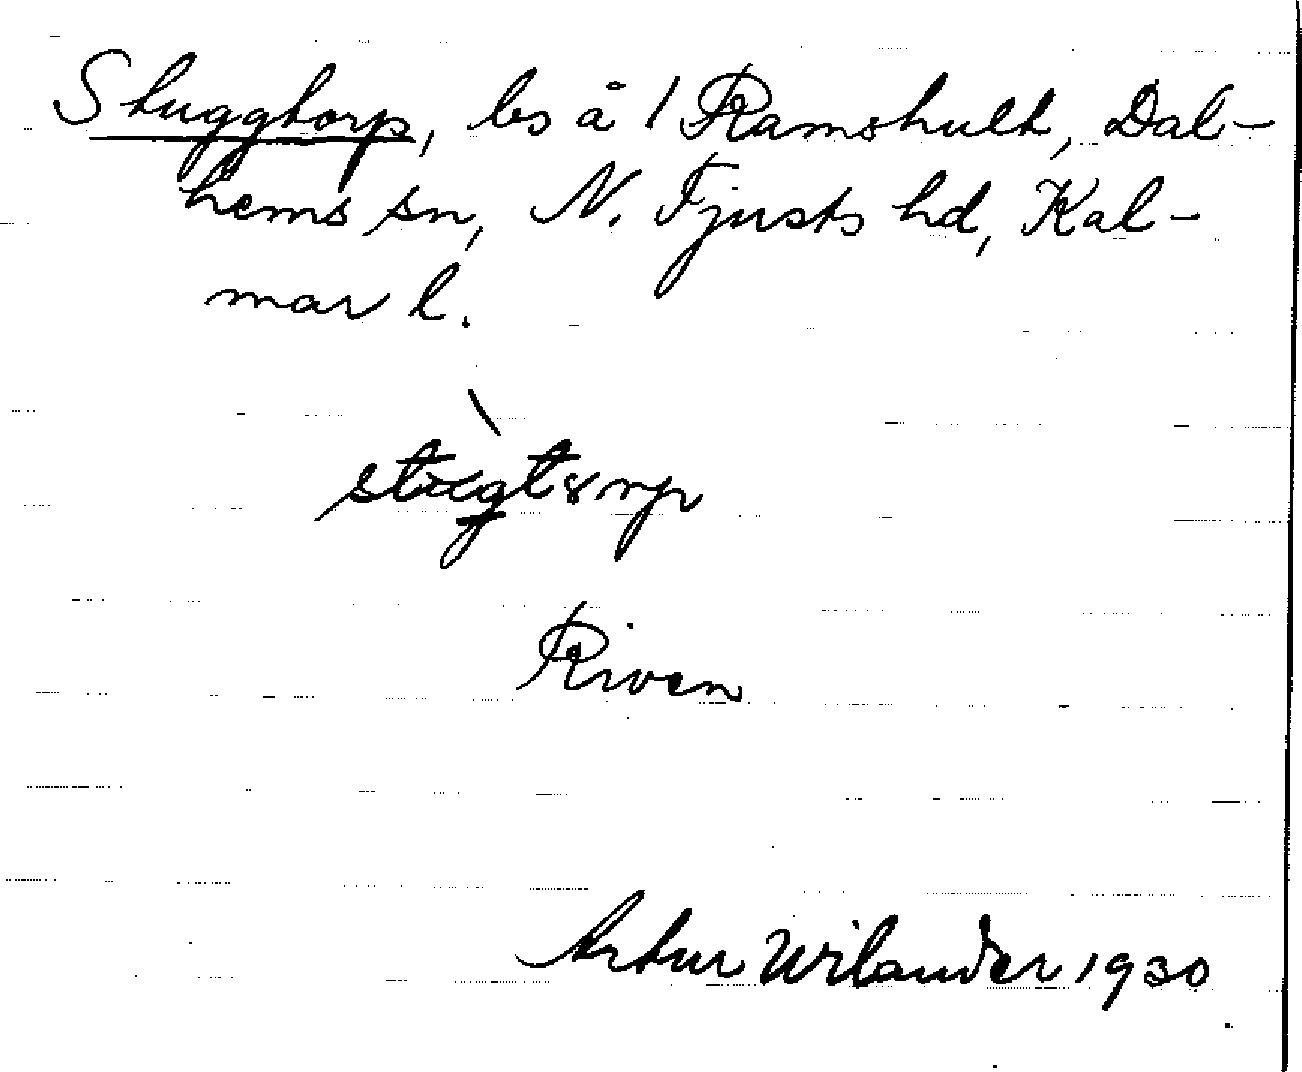 Stuggtorp, ls å 1 Ramshult, Dal-
hems sn, N. Tjusts hd, Kal-
mar l.
Riven
Artur Wilander 1930